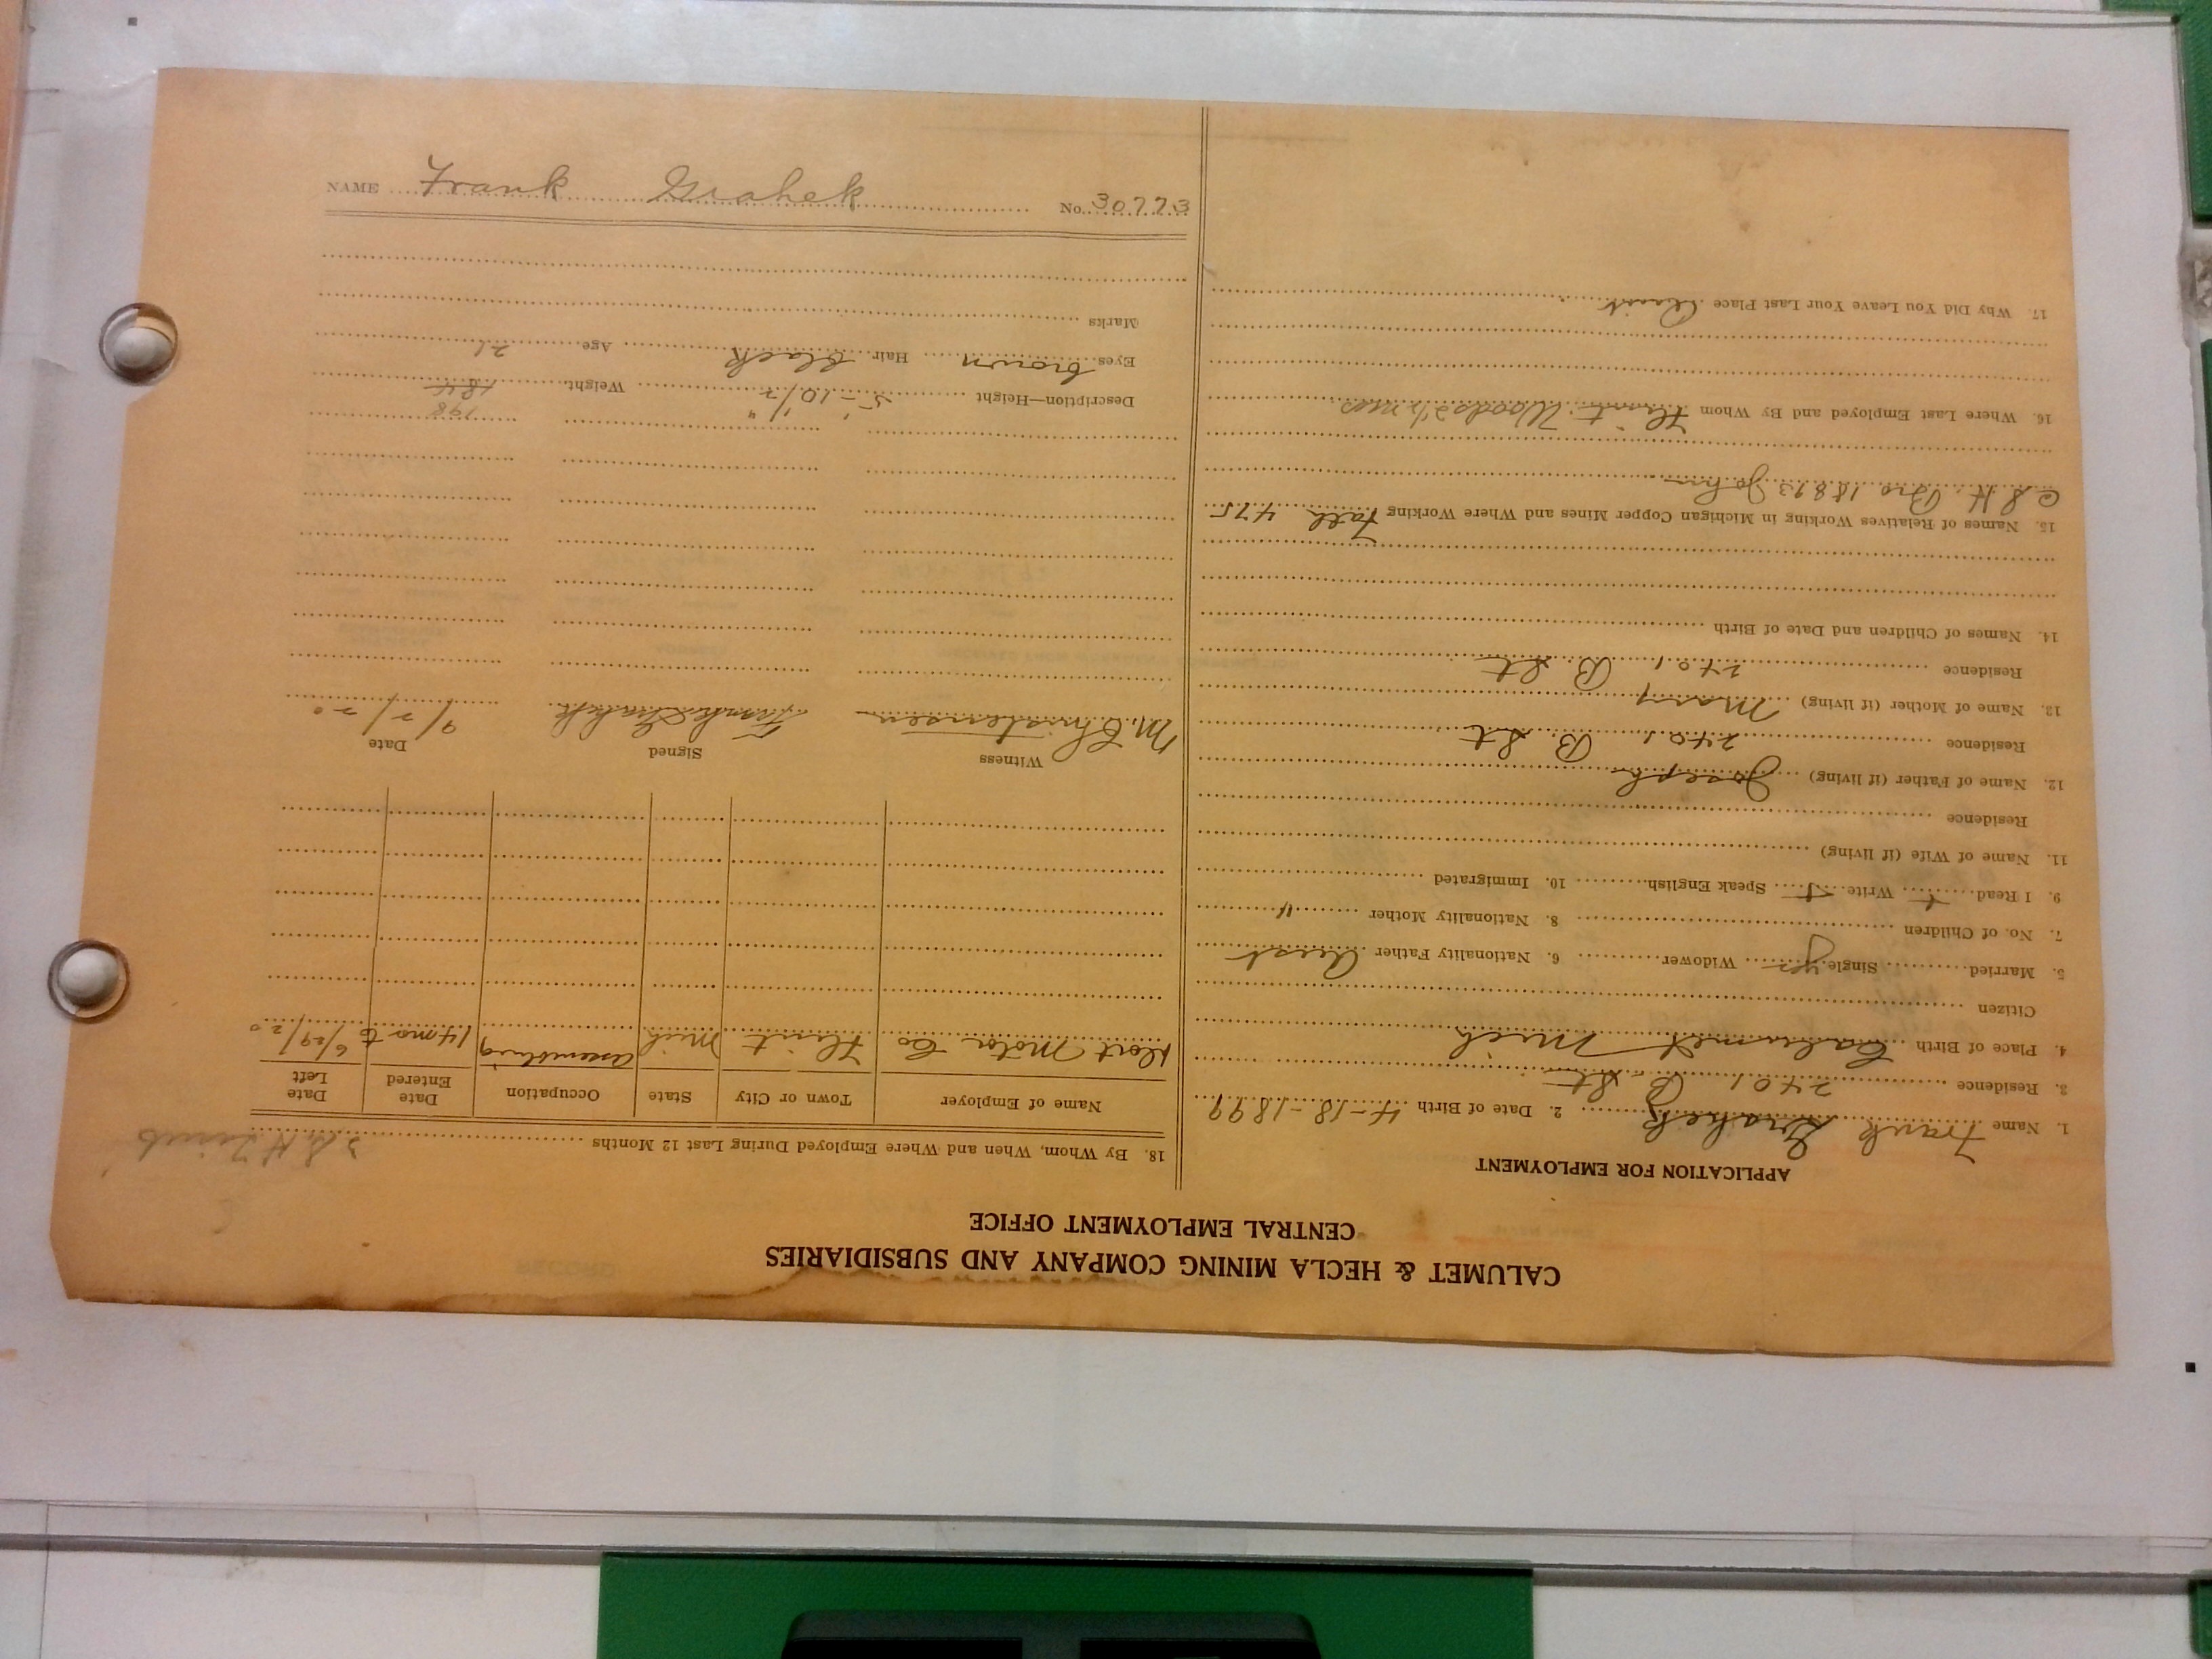 CALUMET & HECLA MINING COMPANY AND SUBSIDIARIES
CENTRAL EMPLOYMENT OFFICE
APPLICATION FOR EMPLOYMENT
1. Name Frank Grahek 2. Date of Birth 4-18-1899
3. Residence 2401 B St
4. Place of Birth Calumet Mich
Citizen
5. Married Single yes Widower 6. Nationality Father Aust
7. No. of Children 8. Nationality Mother "
9. I Read Write Speak English 10. Immigrated
11. Name of Wife (if living)
Residence
12. Name of Father (if living) Joseph
Residence 2401 B St
13. Name of Mother (if living) Mary
Residence 2401 B St
14. Names of Children and Date of Birth
15. Names of Relatives Working in Michigan Copper Mines and Where Working Fath 475
C & H. Bro 18893 John
16. Where Last Employed and By Whom Flint. Woods 2 1/2 mos
17. Why Did You Leave Your Last Place Quit
18. By Whom, When and Where Employed During Last 12 Months
Name of Employer Town or City State Occupation Date Entered Date Left
Dort Motor Co Flint Mich assembling 14 mo to 6/29/20
Witness Signed Date
M. Christensen Frank Grahek 9/7/20
198
Description—Height 5'-10 1/2" Weight 184
Eyes brown Hair black Age 21
Marks
NAME Frank Grahek No. 30773